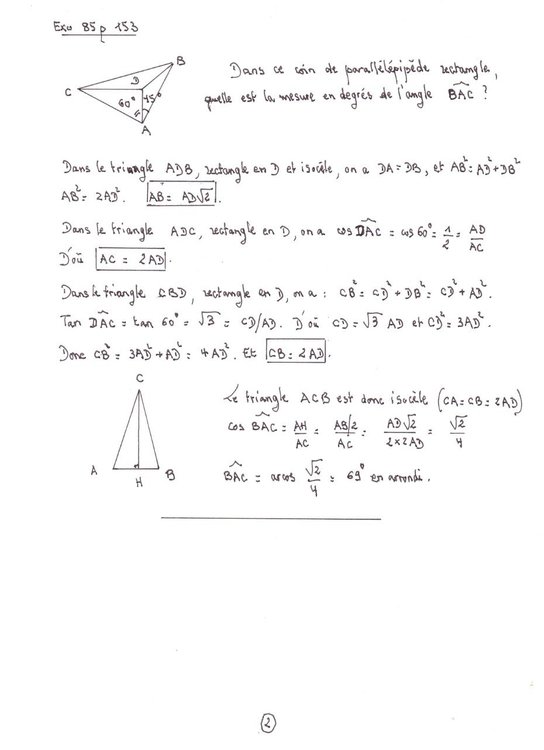 Exo 85 p 153
B
D
C
60° 45°
A
Dans ce coin de parallélépipède rectangle,
quelle est la mesure en degrés de l'angle BAC ?
Dans le triangle ADB, rectangle en D et isocèle, on a DA = DB, et AB² = AD² + DB²
AB² = 2AD². AB = AD√2.
Dans le triangle ADC, rectangle en D, on a cos DAC = cos 60° = 1/2 = AD/AC
D'où AC = 2AD.
Dans le triangle CBD, rectangle en D, on a : CB² = CD² + DB² = CD² + AD².
Tan DAC = tan 60° = √3 = CD/AD. D'où CD = √3 AD et CD² = 3AD².
Donc CB² = 3AD² + AD² = 4AD². Et CB = 2AD.
C
A B
H
Le triangle ACB est donc isocèle (CA = CB = 2AD)
cos BAC = AH/AC = AB/2/AC = AD√2/2×2AD = √2/4
BAC = arcos √2/4 = 69° en arrondi.
2